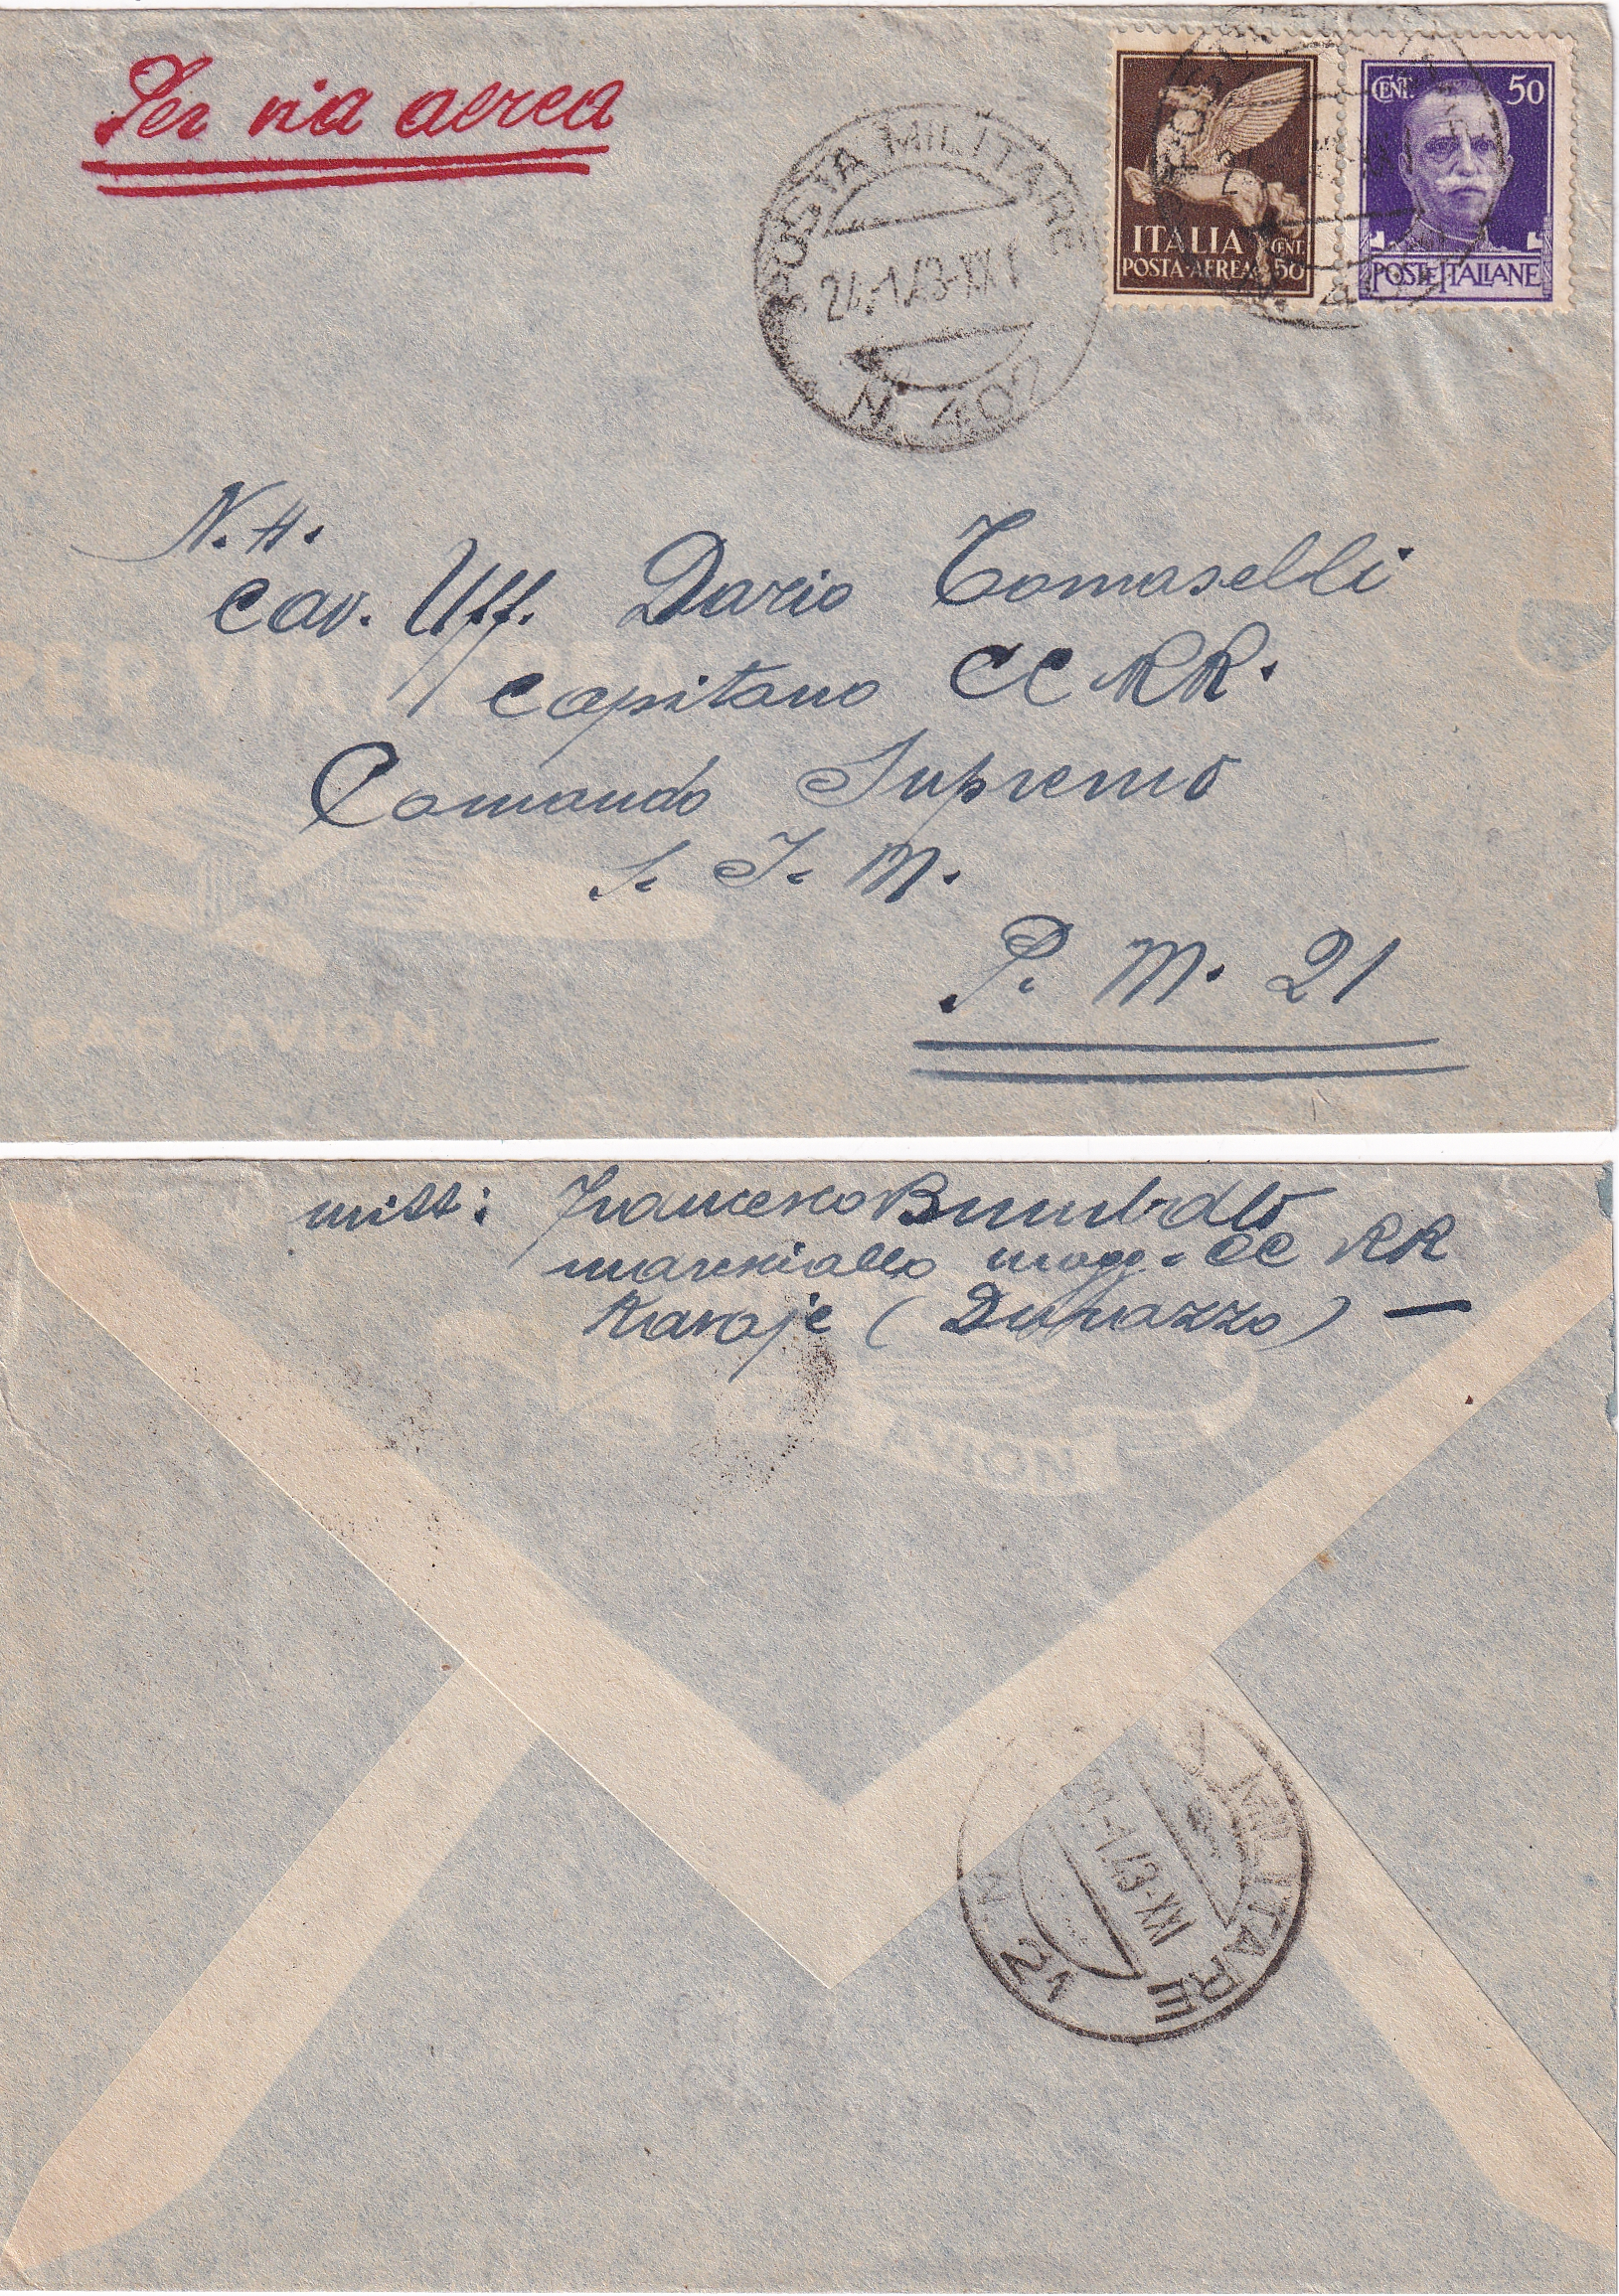 Per via aerea
POSTA MILITARE
24.1.43-XXI
N. 402
ITALIA
POSTA·AEREA
CENT. 50
CENT. 50
POSTE ITALIANE
N. H.
Cav. Uff. Dario Tomaselli
Capitano CC RR.
Comando Supremo
S. I. M.
P. M. 21
PER VIA AEREA
PAR AVION
mitt: Francesco
maresciallo magg. CC RR
(Durazzo) —
AVION
MILITARE
-1.43-XXI
N. 21